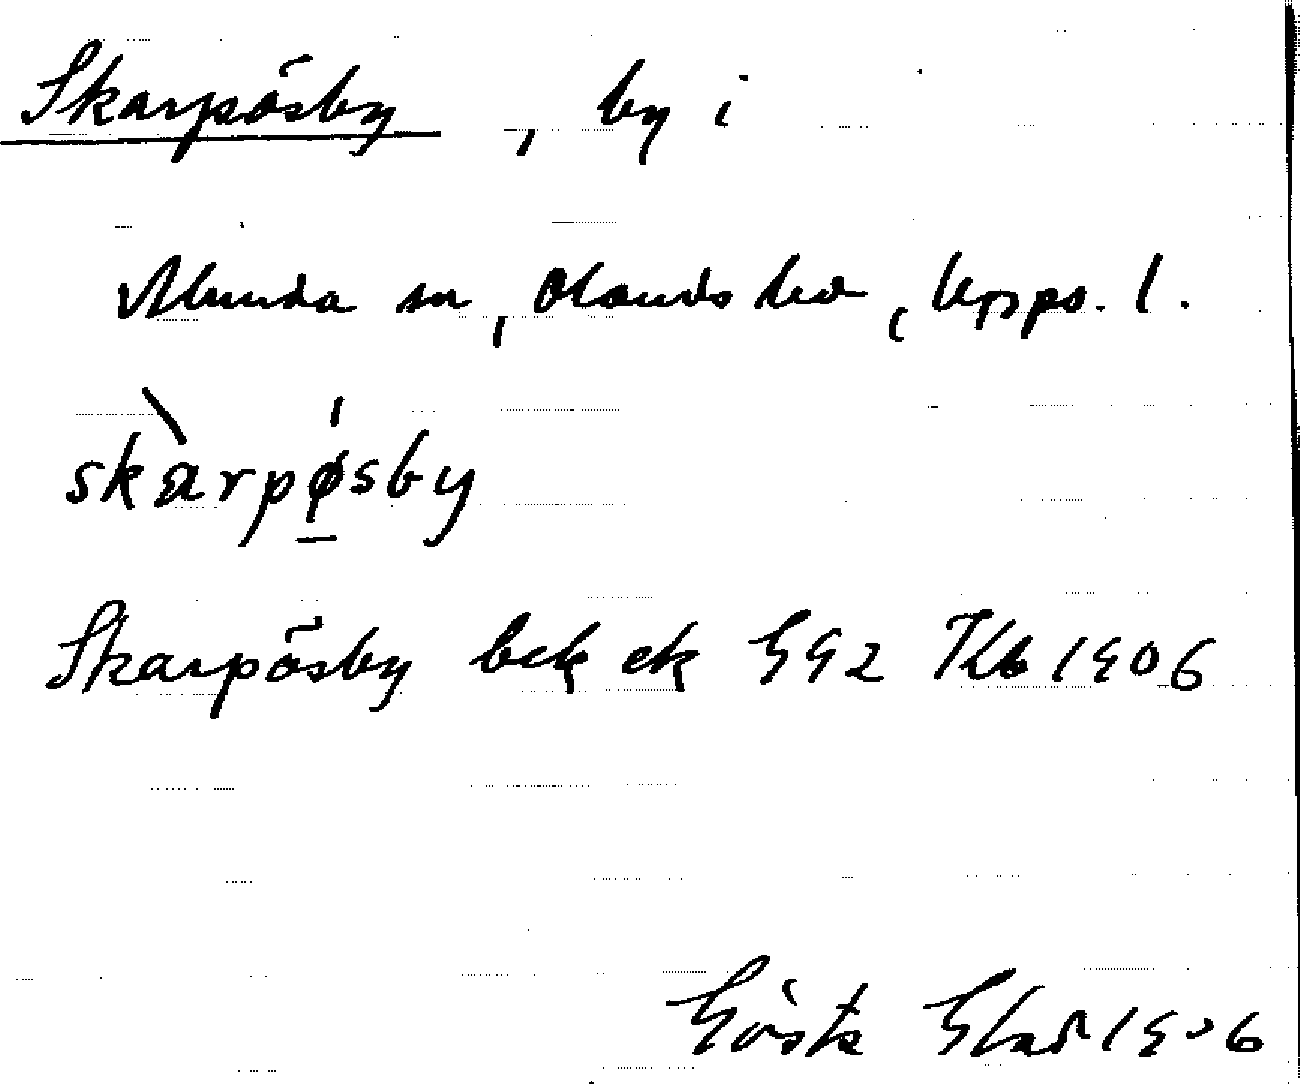 Skarpösby, by i
Alunda sn, Olands hd, Upps. l.
skàrpǿ̱sby
Skarpösby bek ek G92 Kb 1906
Gösta 1906